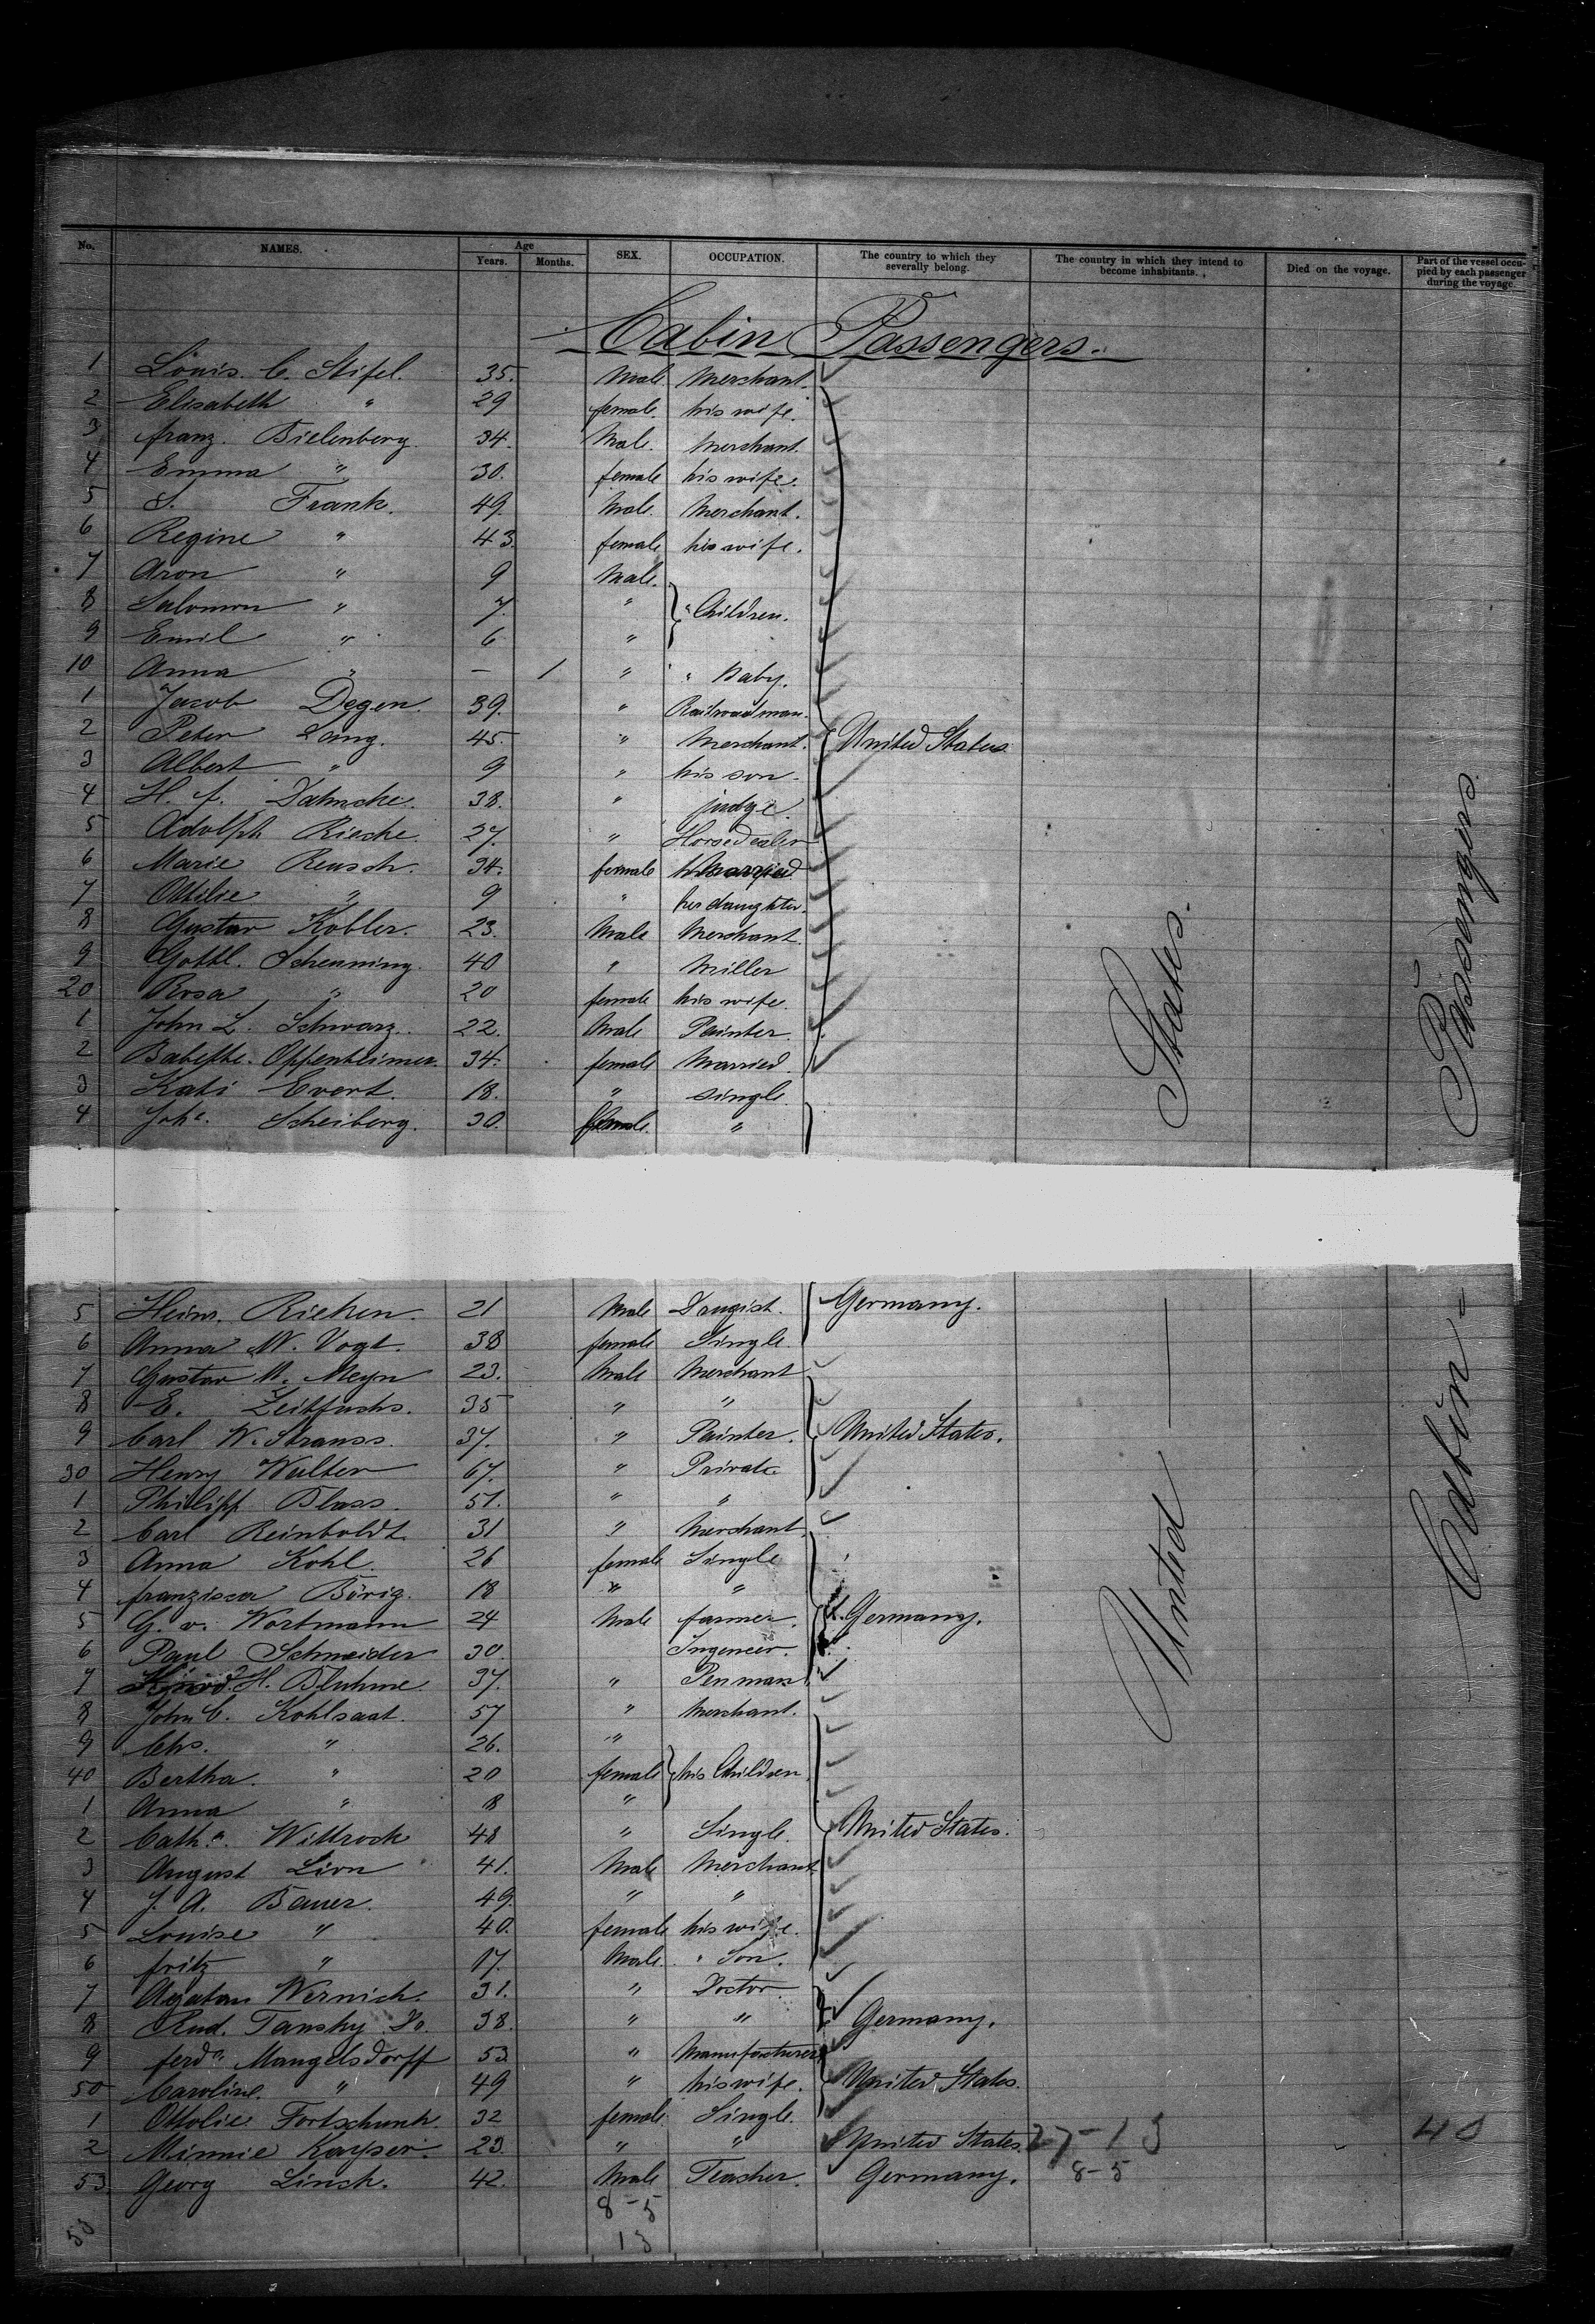 No. NAMES. Age Years. Months. SEX. OCCUPATION. The country to which they severally belong. The country in which they intend to become inhabitants. Died on the voyage. Part of the vessel occupied by each passenger during the voyage.
Cabin Passengers.
1 Louis C. Stifel. 35. Male Merchant.
2 Elisabeth " 29 female. his wife.
3 franz. Bielenberg. 34. Male. Merchant.
4 Emma " 30. female his wife.
5 S. Frank. 49. Male. Merchant.
6 Regine " 43. female his wife.
7 Aron " 9 Male.
8 Salomon " 7. " " Children.
9 Emil " 6 "
10 Anna " — 1 " " Baby.
1 Jacob Degen. 39. " Railroadman.
2 Peter Lang. 45. " Merchant. United States
3 Albert " 9 " his son.
4 H. f. Dahncke. 38. " judge.
5 Adolph Riecke. 27. " Horsedealer
6 Marie Reusch. 34. female Married
7 Ottilie " 9 " her daughter.
8 Gustav Kobler. 23. Male Merchant.
9 Gottl. Scheuning. 40 " Miller
20 Rosa " 20 female his wife.
1 John L. Schwarz. 22. Male Painter.
2 Babette Oppenheimer. 34. female Married.
3 Kati Evert. 18. " single.
4 Johe. Scheiberg. 30. female. "
5 Heinr. Rieken. 21 Male Drugist. Germany.
6 Anna M. Vogt. 38 female Single.
7 Gustav M. Meyn 23. Male Merchant
8 E. Zeitfuchs. 35 " "
9 Carl W. Strauss. 37. " Painter. United States.
30 Henry Walter 67. " Private
1 Philipp Blass. 51. " "
2 Carl Reinboldt 31 " Merchant.
3 Anna Kohl. 26 female Single
4 franzisca Börig. 18 " "
5 G. v. Wortmann 24 Male farmer. Germany.
6 Paul Schneider 30. Ingeneer.
7 H. Bluhme. 37. " Penman
8 John C. Kohlsaat. 57 " Merchant.
9 Chs. " 26. "
40 Bertha. " 20 female his Children
1 Anna " 8 "
2 Cathe. Wittrock 48 " Single. United States.
3 August Lion 41. Male Merchant
4 J. A. Bauer. 49. " "
5 Louise " 40. female his wife.
6 fritz " 17. Male. " Son.
7 Agatan Wernich. 31. " Doctor.
8 Rud. Tansky Dr. 38. " " Germany.
9 ferdn. Mangelsdorff 53 " Manufacturer
50 Caroline. " 49 " his wife. United States.
1 Ottolie Fortschunk. 32 female Single.
2 Minnie Kayser. 23. " " United States. 27-13 40
53. Georg Linck. 42. Male Teacher. Germany. 8-5
8-5
53 13
United States.
Cabin Passengers